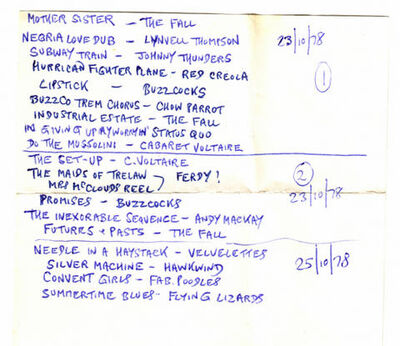 MOTHER SISTER - THE FALL
NEGRIA LOVE DUB - LYNVELL THOMPSON 23/10/78
SUBWAY TRAIN - JOHNNY THUNDERS
HURRICAN FIGHTER PLANE - RED CREOLA 1
LIPSTICK - BUZZCOCKS
BUZZCO TREM CHORUS - CHOW PARROT
INDUSTRIAL ESTATE - THE FALL
IN GIVING UP MY WORRYIN' STATUS QUO
DO THE MUSSOLINI - CABARET VOLTAIRE
THE SET-UP - C. VOLTAIRE 2
THE MAIDS OF TRELAW FERDY!
MRS McCLOUDS REEL 23/10/78
PROMISES - BUZZCOCKS
THE INEXORABLE SEQUENCE - ANDY MACKAY
FUTURES + PASTS - THE FALL
NEEDLE IN A HAYSTACK - VELVELETTES
SILVER MACHINE - HAWKWIND 25/10/78
CONVENT GIRLS - FAB. POODLES
SUMMERTIME BLUES - FLYING LIZARDS